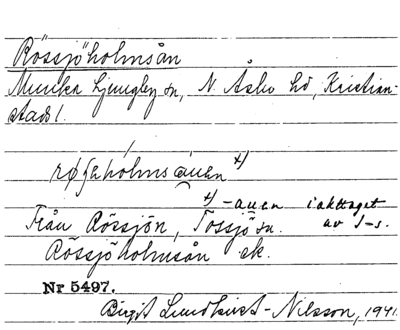 Rössjöholmsån
Munka Ljungby sn, N. Åsbo hd, Kristian-
stads l.
røʃəhólmsauen x)
x) -auen iakttaget
av I-s.
Från Rössjön, Tossjö sn.
Rössjöholmsån ek.
Nr 5497.
Birgit Lundkvist-Nilsson, 1941.